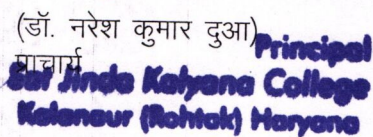 (डॉ. नरेश कुमार दुआ)
प्राचार्य
Principal
Sar Jinda Kalyana College
Kalanaur (Rohtak) Haryana